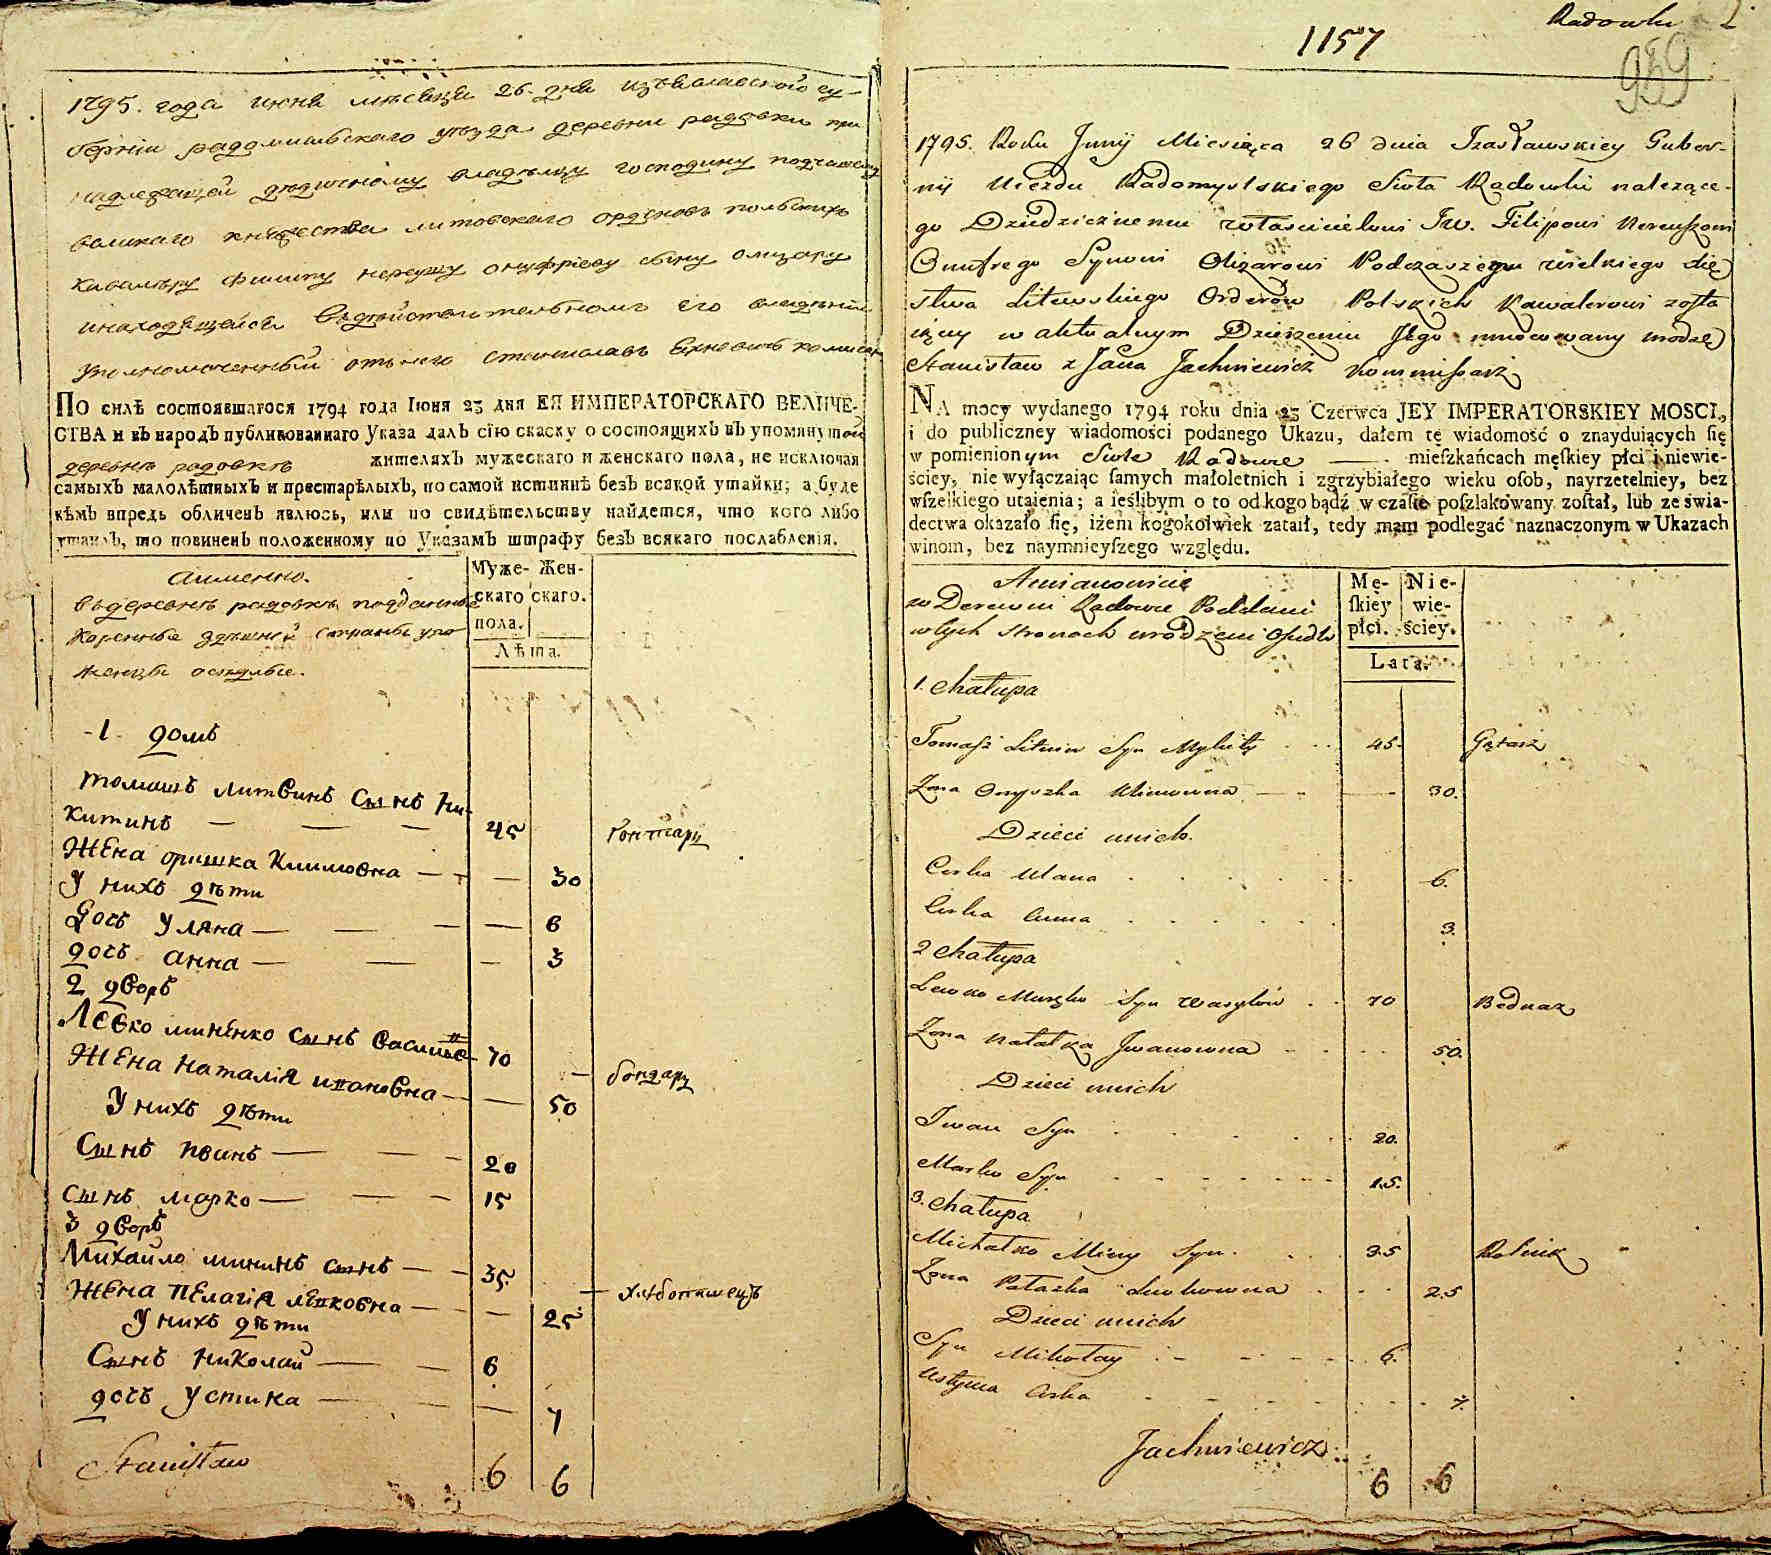 1795. года июня месяца 26. дня изяславской гу-
берніи радомишьскаго уезда деревни радовки при
надлежащей дедичному владельцу господину подчашему
великаго княжества литовского орденовъ польскихъ
кавалеру филипу нерушу онуфріеву сыну олизару
инаходящейся вдействительномъ его владеніи
уполномоченный отънего станиславъ яхневичъ комисаръ
По силѣ состоявшагося 1794 года Іюня 23 дня ЕЯ ИМПЕРАТОРСКАГО ВЕЛИЧЕ-
СТВА и въ народъ публикованнаго Указа далъ сію скаску о состоящихъ въ упомянутой
деревнѣ радовкѣ жителяхъ мужескаго и женскаго пола, не исключая
самыхъ малолѣтныхъ и престарѣлыхъ, по самой истиннѣ безъ всякой утайки; а буде
кѣмъ впредь обличенъ явлюсь, или по свидѣтельству найдется, что кого либо
утаилъ, то повиненъ положенному по Указамъ штрафу безъ всякаго послабленія.
аименно.
вдеревнѣ радовкѣ подданные
коренные здешней стараны уро
женцы оседлые.
Муже-
скаго
пола.
Жен-
скаго.
Лѣта.
-1- домъ
томашъ литвинъ сынъ ни-
китинъ — — — 45 гонтарь
жена оришка климовна — — — 30
У нихъ дѣти
дочь Уляна — — — — 6
дочь анна — — — 3
2 дворъ
Левко миненко сынъ васильевъ 70 бондарь
жена наталія ивановна — — 50
У нихъ дѣти
Сынъ иванъ — — — 20
сынъ марко — — — 15
3 дворъ
Михайло мининъ сынъ — — 35 хлебопашецъ
жена пелагія левковна — — 25
У нихъ дѣти
Сынъ николай — — 6
дочь устина — — — 7
Stanisław 6 6
Radowka 2
1157
959
1795. Roku Junij Miesiąca 26 dnia Izasławskiey Guber-
nij Uiezdu Radomyslskiego Sioła Radowki należące-
go Dziedzicznemu właścicielowi Jw. Filipowi Nereuszowi
Onufrego Synowi Olizarowi Podczaszemu wielkiego Xię
stwa Litewskiego Orderow Polskich Kawalerowi zosta
iący w aktualnym Dzierzeniu Jego umocowany
Stanisław z Jana Jachniewicz Kommissarz
NA mocy wydanego 1794 roku dnia 23 Czerwca JEY IMPERATORSKIEY MOSCI,
i do publiczney wiadomości podanego Ukazu, dałem tę wiadomość o znayduiących ſię
w pomienionym Siole Radowce mieſzkańcach męſkiey płci i niewie-
ściey, nie wyłączaiąc ſamych małoletnich i zgrzybiałego wieku oſob, nayrzetelniey, bez
wſzelkiego utaienia; a ieślibym o to od kogo bądź w czaſie poſzlakowany zoſtał, lub ze świa-
dectwa okazało ſię, iżem kogokolwiek zataił, tedy mam podlegać naznaczonym w Ukazach
winom, bez naymnieyſzego względu.
Amianowicie
w Derewni Radowce Poddani
w tych stronach urodzeni Osiedli
Mę-
ſkiey
płci.
Nie-
wie-
ściey.
Lata.
1. Chałupa
Tomasz Litwin Syn Mykity 45. Gątarz
Żona Oryszka Klimowna 30.
Dzieci unich.
Corka Ulana 6.
Corka Anna 3.
2 Chałupa
Lewko Syn Wasylow 70 Bednarz
Żona Natalka Jwanowna 50.
Dzieci unich
Jwan Syn 20.
Marko Syn 15.
3. Chałupa
Michałko Miny Syn. 35 Rolnik
Żona Pałazka Lewkowna 25
Dzieci unich
Syn Mikołay 6.
Ustyma Corka 7.
Jachniewicz 6 6